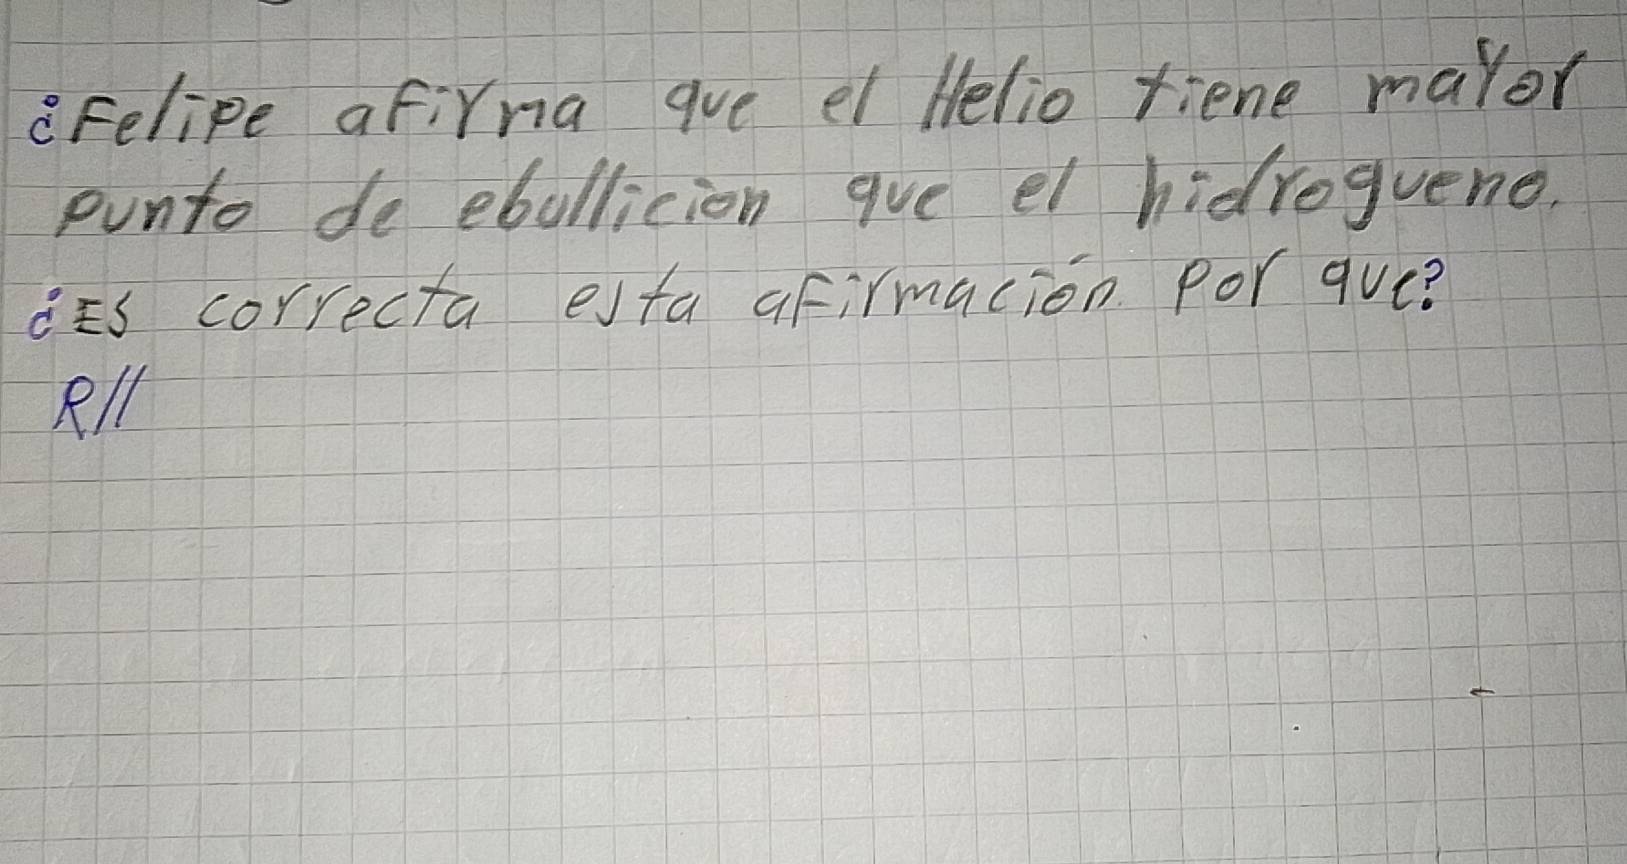 ¿Felipe afirma que el Helio tiene mayor
punto de ebullicion que el hidrogueno.
¿Es correcta esta afirmación. Por que?
R//